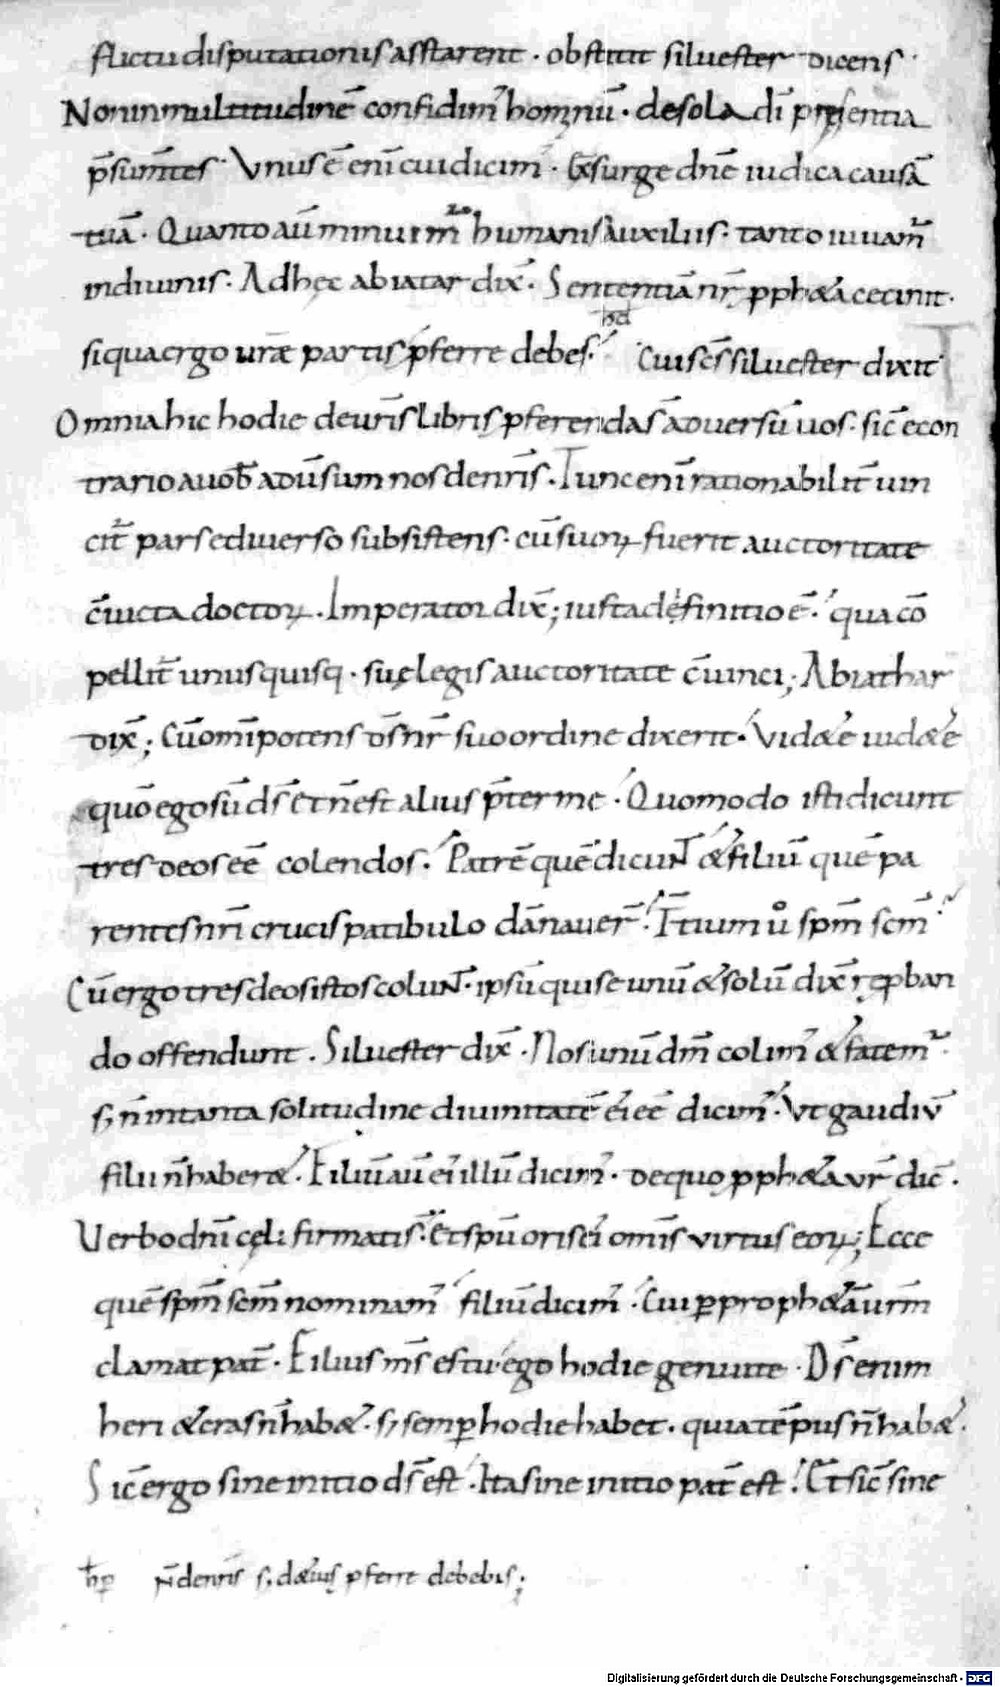 flictu disputationis asstarent · obstitit siluester dicens ·
Non in multitudinē confidim᷒ hominū · de sola dī presentia
p̄sum̄tes · Vnus ē enī cui dicim᷒ · Exsurge dn̄e iudica causā
tuā · Quanto aū minuim᷒ humanis auxiliis · tanto iuuam᷒
in diuinis · Ad hęc abiatar dix̄ · Sententiā nr̄ ꝓph&a cecinit ·
hd
siqua ergo uræ partis ꝓferre debes · Cui sc̄s siluester dixit
Omnia hic hodie de ur̄is libris ꝓferenda s̄ aduersū uos · sic̄ econ
trario a uob̄ adūsum nos de nr̄is · Tunc enī rationabilit̄ uin
cit᷒ pars e diuerso subsistens · cū suoꝝ fuerit auctoritate
c̄uicta doctoꝝ · Imperator dix̄; iusta definitio ē · qua cō
pellit᷒ unusquisq · suę legis auctoritate c̄uinci; Abiathar
dix̄; Cū omīpotens ds̄ nr̄ suo ordine dixerit · Vid&e uid&e
quō ego sū ds̄ et n̄ est alius p̄ter me · Quomodo isti dicunt
tres deos eē colendos · Patrē quē dicuNT & filiū quē pa
rentes nr̄i crucis patibulo dānauer̄ · T̄tium ů spm̄ scm̄
Cū ergo tres deos istos coluNT · ipsū qui se unū & solū dix̄ reꝓban
do offendunt · Siluester dix̄ · Nos unū dm̄ colim᷒ & fatem᷒ ·
s; n̄ in tanta solitudine diuinitatē ei᷒ eē dicim᷒ · Vt gaudiū
filii n̄ haber& · Filiū aū ei᷒ illū dicim᷒ · de quo ꝓph&a ur̄ dic̄ ·
Verbo dn̄i cęli firmati s̄ · Et spū oris ei᷒ omīs virtus eoꝝ; Ecce
quē spm̄ scm̄ nominam᷒ filiū dicim᷒ · Cui ꝑ proph&ā urm̄
clamat pat̄ · Filius ms̄ es tu · ego hodie genui te · Ds̄ enim
heri & cras n̄ hab& · s; semꝑ hodie habet · quia tēpus n̄ hab& ·
Sic̄ ergo sine initio ds̄ est · Ita sine initio pat̄ est · Et sic̄ sine
hꝑ n̄ de nr̄is s; de ur̄is ꝓferre debebis;
Digitalisierung gefördert durch die Deutsche Forschungsgemeinschaft - DFG